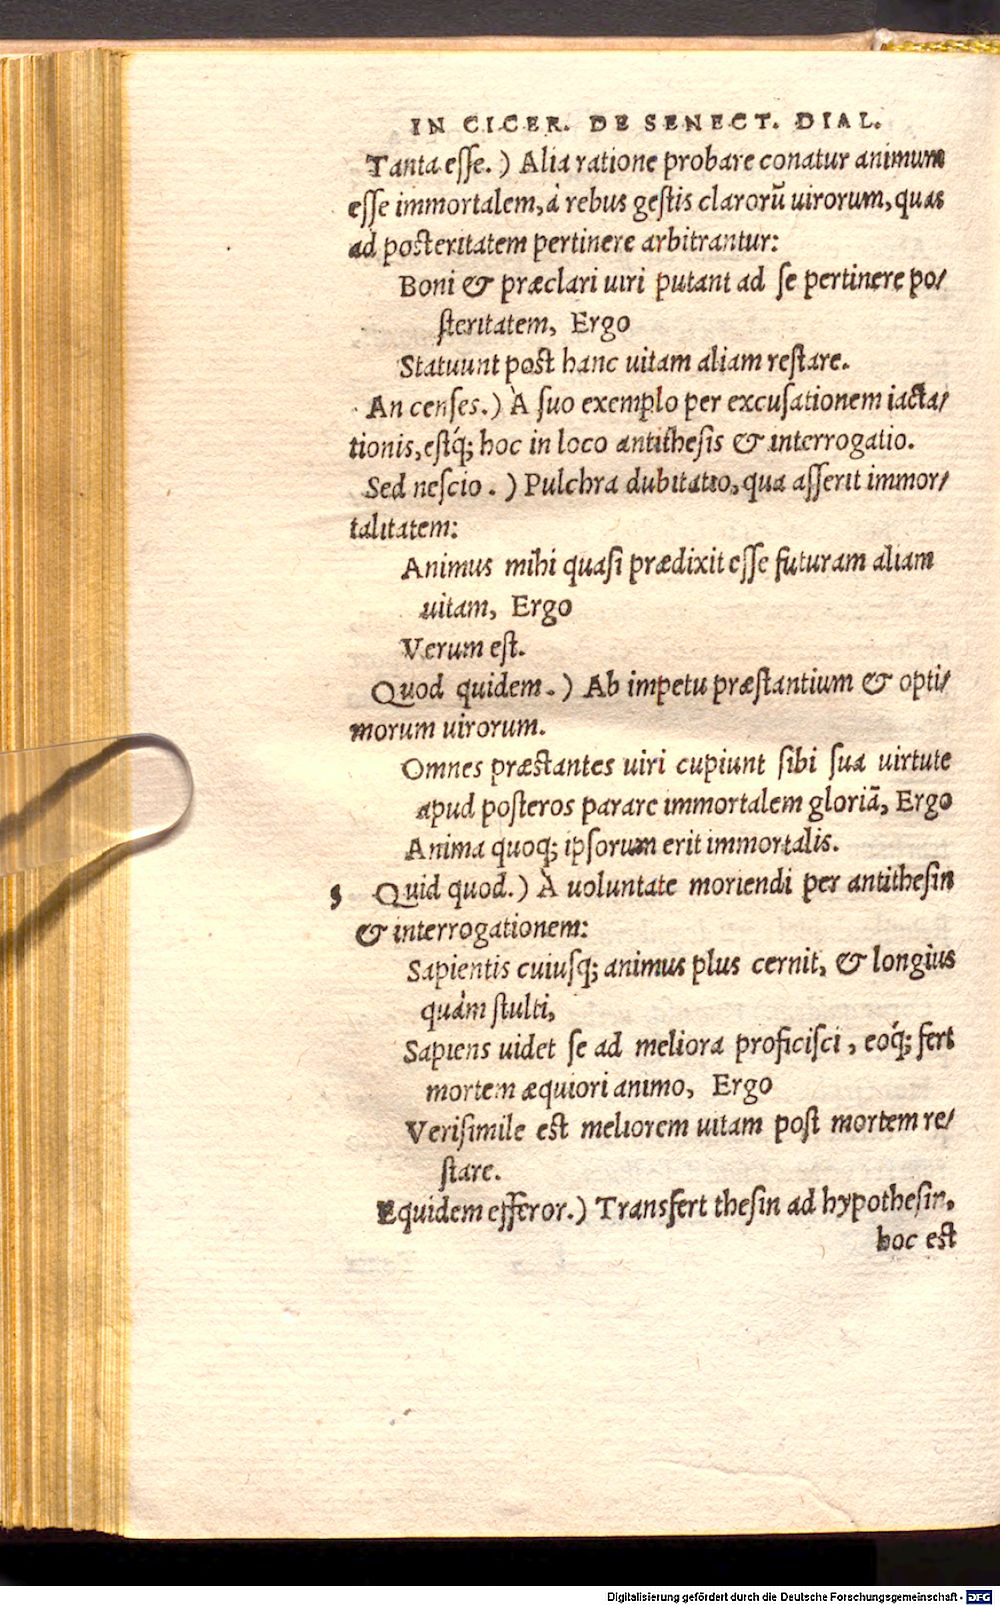 IN CICER. DE SENECT. DIAL.
Tanta esse.) Alia ratione probare conatur animum
esse immortalem, à rebus gestis clarorũ uirorum, quas
ad posteritatem pertinere arbitrantur:
Boni & præclari uiri putant ad se pertinere po/
steritatem, Ergo
Statuunt post hanc uitam aliam restare.
An censes.) À suo exemplo per excusationem iacta/
tionis, estq́; hoc in loco antithesis & interrogatio.
Sed nescio.) Pulchra dubitatio, qua asserit immor/
talitatem:
Animus mihi quasi prædixit esse futuram aliam
uitam, Ergo
Verum est.
Quod quidem.) Ab impetu præstantium & opti/
morum uirorum.
Omnes præstantes uiri cupiunt sibi sua uirtute
apud posteros parare immortalem gloriã, Ergo
Anima quoq; ipsorum erit immortalis.
Quid quod.) À uoluntate moriendi per antithesin
& interrogationem:
Sapientis cuiusq; animus plus cernit, & longius
quàm stulti,
Sapiens uidet se ad meliora proficisci, eoq́; fert
mortem æquiori animo, Ergo
Verisimile est meliorem uitam post mortem re/
stare.
Equidem efferor.) Transfert thesin ad hypothesin,
hoc est
Digitalisierung gefördert durch die Deutsche Forschungsgemeinschaft - DFG